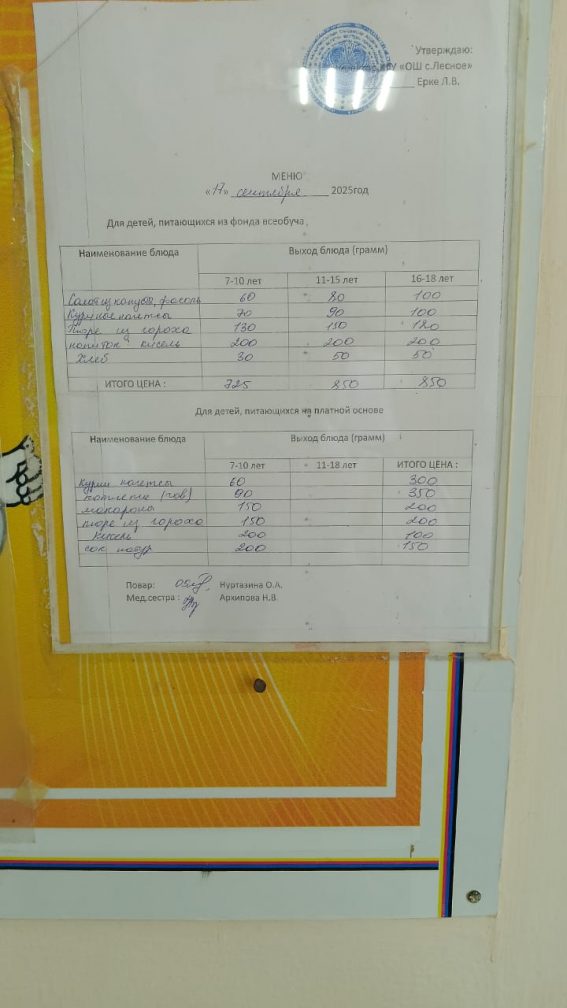 Утверждаю:
КГУ «ОШ с.Лесное»
Ерке Л.В.
МЕНЮ
«17» сентября 2025год
Для детей, питающихся из фонда всеобуча
Наименование блюда Выход блюда (грамм)
7-10 лет 11-15 лет 16-18 лет
Салат из капуст, фасоль 60 80 100
Куриные наггетсы 70 90 100
Пюре из гороха 130 150 180
напиток кисель 200 200 200
Хлеб 30 50 50
ИТОГО ЦЕНА : 725 850 850
Для детей, питающихся на платной основе
Наименование блюда Выход блюда (грамм)
7-10 лет 11-18 лет ИТОГО ЦЕНА :
60 300
котлеты (гов) 90 350
макароны 150 200
пюре из гороха 150 200
кисель 200 100
сок 200 150
Повар: Нуртазина О.А.
Мед.сестра : Архипова Н.В.